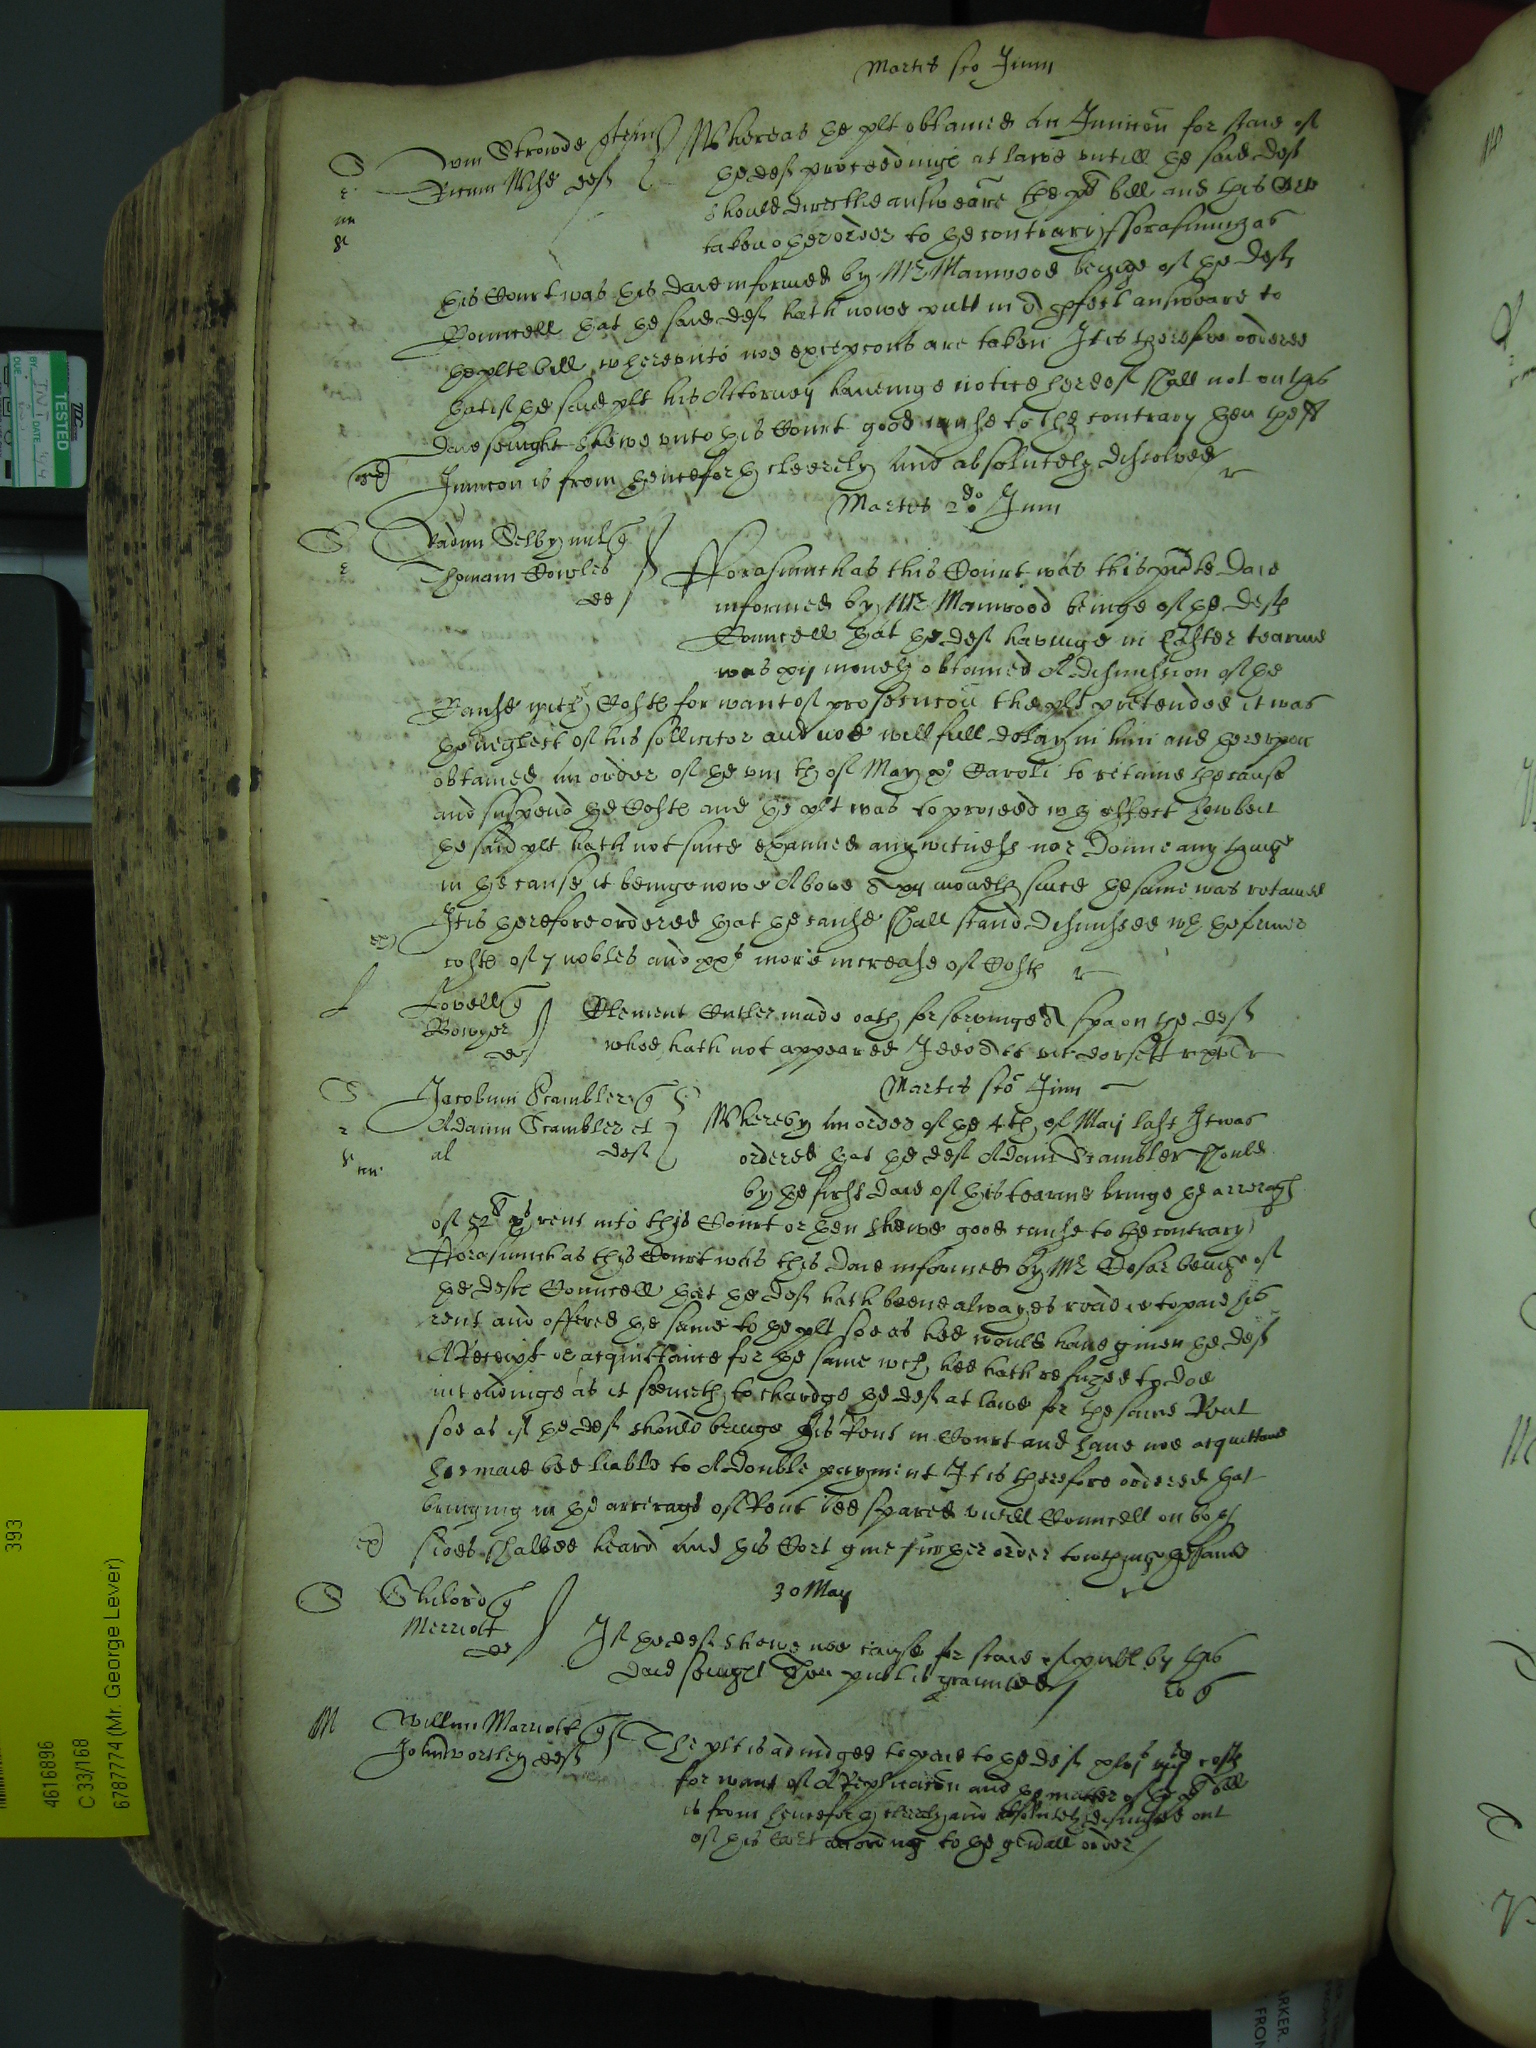 Martis sc̃do Junii
Strowde
Ric̃um Wise def
Whereas the plt obtained an Iniunccõn for staie of
the def proceedinge at lawe vntill the said def
should directlie answeare the plts bill and this Court
taken other order to the contrary fforasmuch as
this Court was this daie informed by Mr Manwood beinge of the defts
Councell that the said def hath nowe putt in a perfect answeare to
the plts bill wherevnto noe excepcõns are taken It is therefore ordered
that if the said plt his Attorney haueinge notice hereof shall not on this
daie seavnight shewe vnto this Court good cause to the contrary then the sd
Iniunccon is from henceforth cleerely and absolutely dissolved
Martis 2do Junii
Selby mil q
Thomam Cowles
de
Fforasmuch as this Court was this pñte daie
informed by Mr Manwood beinge of the defts
Councell that the def havinge in Easter tearme
was xii moneth obtained A dismission of the
Cause with Coste for want of prosecucõn the plt pretended it was
the neglect of his sollicitor and noe willfull delay in him and therevpon
obtained an order of the viii th of May po Caroli to retaine the cause
and suspend the Coste and the plt was to proceed wth effect howbeit
the said plt hath not since exãmined any witnesse nor donne any thinge
in the cause it beinge nowe Above xii moneth since the same was retained
It is therefore ordered that the cause shall stand dismissed wth the former
coste of 7 nobles and xxs more increase of Coste
Lovell q
Bowyer
de
Clement Cutler made oath for servinge A spa on the def
whoe hath not appeared Ideo
Martis sc̃do Junii
Jacobum Scambler q
Adamu Scambler et
al def
Whereby an order of the 4th of May last It was
ordered that the def Adam Scambler should
by the first daie of this tearme bringe the arrerage
of rent into this Court or then shewe good cause to the contrary
Fforasmuch as this Court was this daie informed by Mr Cesar beinge of
the defts Councell that the def hath beene alwayes readie to paie his
rent and offered the same to the plt soe as hee would haue given the def
A Receipt or acquittance for the same wch hee hath refuzed to doe
intendinge as it seemeth to chardge the def at lawe for the same Rent
soe as if the def should bringe his Rent in Court and haue noe acquittance
hee maie bee liable to A double payment It is therefore ordered that
bringing in the arrerage of Rent bee spared vntill Councell on both
sides shalbee heard And this Cort give further order towching the same
Merriott
de
30 May
If the def shewe noe cause for staie of publ by this
daie sevnight Then publ is graunted
Willm Marriott q
John Wortley def
The plt is adiudged to paie to the def coste
for want of A Replicacõn and the matter of the sd bill
is from henceforth cleerely and absolutely dismissed out
of this Court according to the gen̄all order
TESTED
BY
DATE
DUE
393
4616896
C 33/168
6787774 (Mr. George Lever)